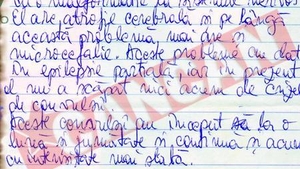 o malformație la sistemul nervos
El are, atrofie cerebrală și pe lângă
această problemă mai are și
microcefalie. Aceste probleme au dat
în epilepsie parțială, iar în prezent
el nu a scăpat nici acum de crizele
de convulsii.
Aceste convulsii au început la o
lună și jumătate și continuă și acum
cu intensitate mai slabă.